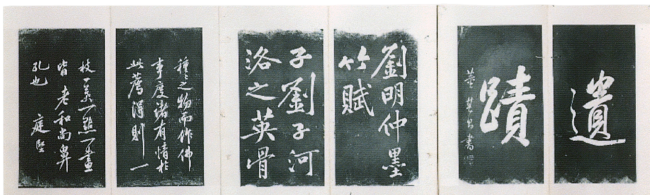 遺
蹟
劉明仲墨
竹賦
子劉子河
洛之英骨
種〻之物而作佛
事度諸有情於
此薦得則一
枝一葉一點一畫
皆老和尚鼻
孔也 庭堅